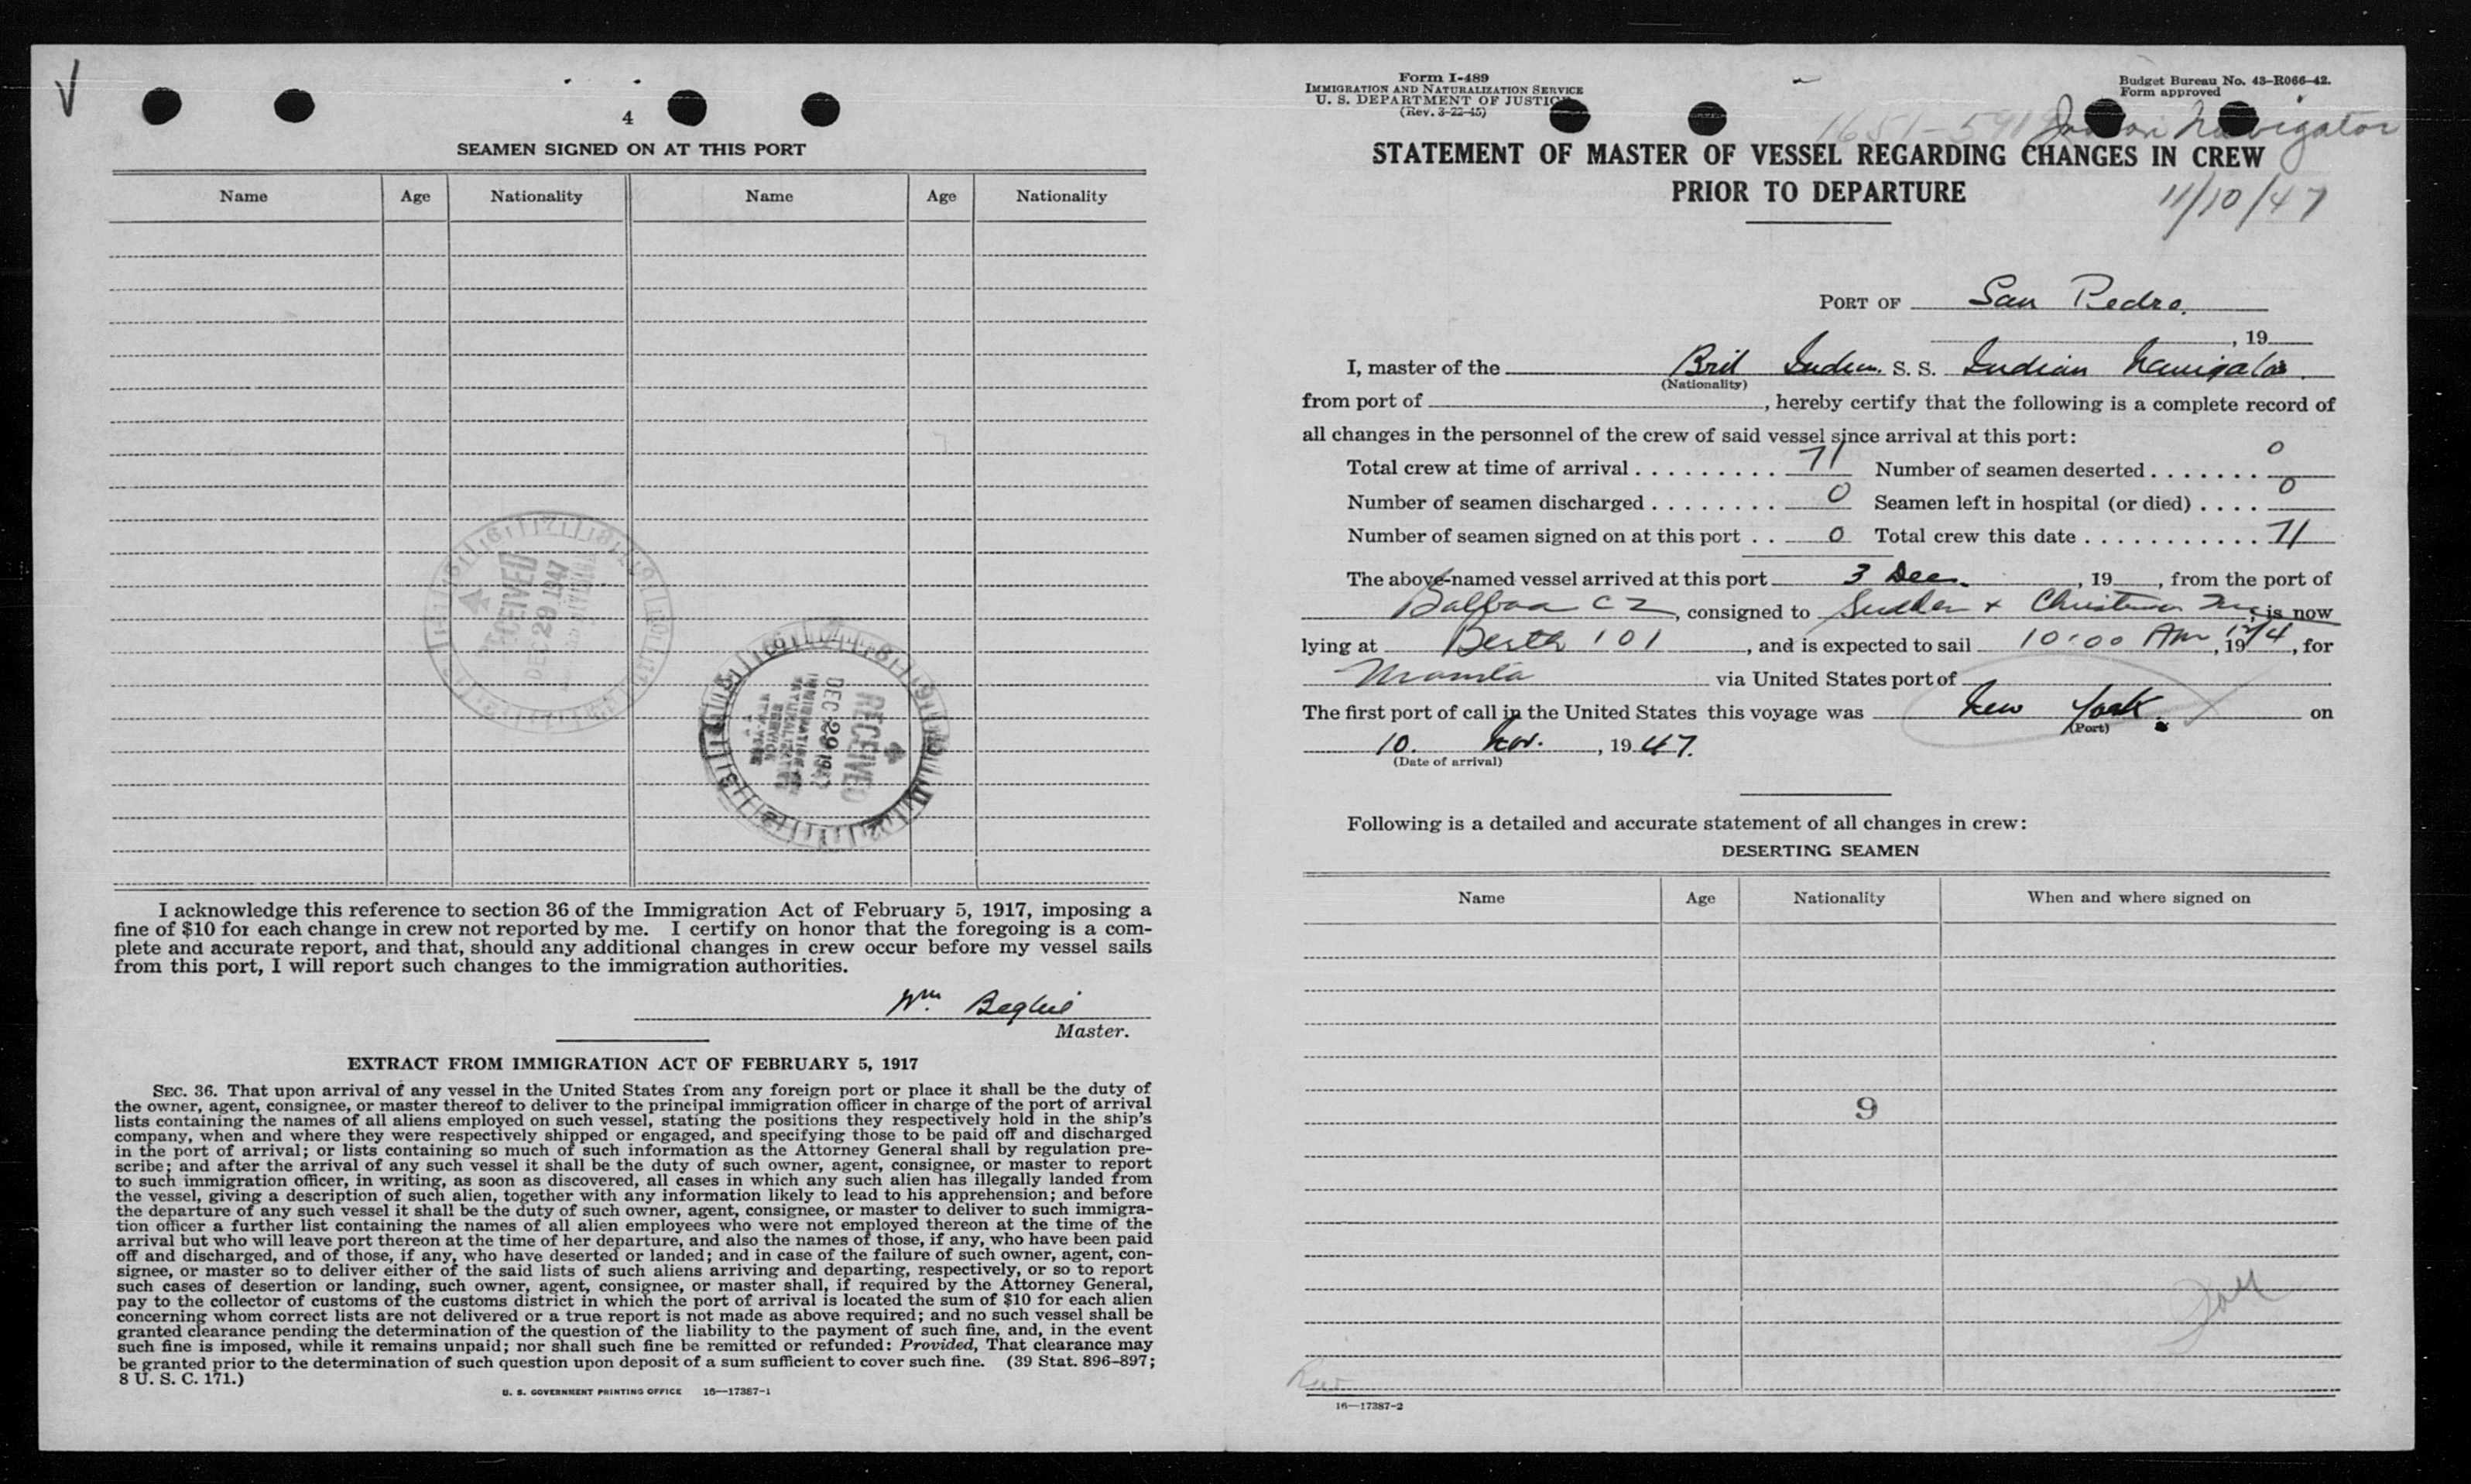 4
SEAMEN SIGNED ON AT THIS PORT
Name Age Nationality Name Age Nationality
RECEIVED
DEC 29 1947
RECEIVED
DEC 29 1947
IMMIGRATION &
NATURALIZATION
SERVICE
NEW YORK
I acknowledge this reference to section 36 of the Immigration Act of February 5, 1917, imposing a
fine of $10 for each change in crew not reported by me. I certify on honor that the foregoing is a com-
plete and accurate report, and that, should any additional changes in crew occur before my vessel sails
from this port, I will report such changes to the immigration authorities.
Wm Beghie
Master.
EXTRACT FROM IMMIGRATION ACT OF FEBRUARY 5, 1917
SEC. 36. That upon arrival of any vessel in the United States from any foreign port or place it shall be the duty of
the owner, agent, consignee, or master thereof to deliver to the principal immigration officer in charge of the port of arrival
lists containing the names of all aliens employed on such vessel, stating the positions they respectively hold in the ship's
company, when and where they were respectively shipped or engaged, and specifying those to be paid off and discharged
in the port of arrival; or lists containing so much of such information as the Attorney General shall by regulation pre-
scribe; and after the arrival of any such vessel it shall be the duty of such owner, agent, consignee, or master to report
to such immigration officer, in writing, as soon as discovered, all cases in which any such alien has illegally landed from
the vessel, giving a description of such alien, together with any information likely to lead to his apprehension; and before
the departure of any such vessel it shall be the duty of such owner, agent, consignee, or master to deliver to such immigra-
tion officer a further list containing the names of all alien employees who were not employed thereon at the time of the
arrival but who will leave port thereon at the time of her departure, and also the names of those, if any, who have been paid
off and discharged, and of those, if any, who have deserted or landed; and in case of the failure of such owner, agent, con-
signee, or master so to deliver either of the said lists of such aliens arriving and departing, respectively, or so to report
such cases of desertion or landing, such owner, agent, consignee, or master shall, if required by the Attorney General,
pay to the collector of customs of the customs district in which the port of arrival is located the sum of $10 for each alien
concerning whom correct lists are not delivered or a true report is not made as above required; and no such vessel shall be
granted clearance pending the determination of the question of the liability to the payment of such fine, and, in the event
such fine is imposed, while it remains unpaid; nor shall such fine be remitted or refunded: Provided, That clearance may
be granted prior to the determination of such question upon deposit of a sum sufficient to cover such fine. (39 Stat. 896–897;
8 U. S. C. 171.)
U. S. GOVERNMENT PRINTING OFFICE 16—17387-1
Form I-489
IMMIGRATION AND NATURALIZATION SERVICE
U. S. DEPARTMENT OF JUSTICE
(Rev. 3-22-45)
Budget Bureau No. 43-R066-42.
Form approved
Navigator
STATEMENT OF MASTER OF VESSEL REGARDING CHANGES IN CREW
PRIOR TO DEPARTURE
11/10/47
PORT OF San Pedro.
, 19
I, master of the Brit Indian. S. S. Indian Navigator.
(Nationality)
from port of , hereby certify that the following is a complete record of
all changes in the personnel of the crew of said vessel since arrival at this port:
Total crew at time of arrival . . . . . . . . . 71 Number of seamen deserted . . . . . . . 0
Number of seamen discharged . . . . . . . . 0 Seamen left in hospital (or died) . . . . 0
Number of seamen signed on at this port . . 0 Total crew this date . . . . . . . . . . . 71
The above-named vessel arrived at this port 3 Dec. , 19 , from the port of
Balboa CZ, consigned to & is now
lying at Berth 101, and is expected to sail 10:00 Am 12/4, 19 , for
Manila via United States port of
The first port of call in the United States this voyage was New York. on
(Port)
10. Nov. , 1947.
(Date of arrival)
Following is a detailed and accurate statement of all changes in crew:
DESERTING SEAMEN
Name Age Nationality When and where signed on
9
16—17387-2